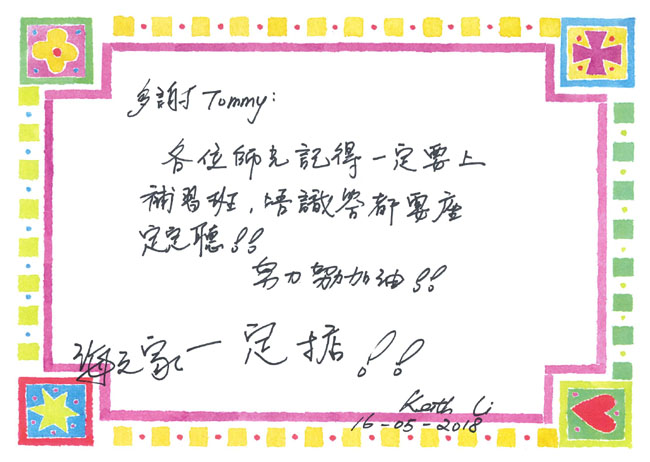 多謝 Tommy:
各位師兄記得一定要上
補習班，唔識答都要座
定定聽!!
努力努加油!!
家一定掂!!
Keith Li
16-05-2018